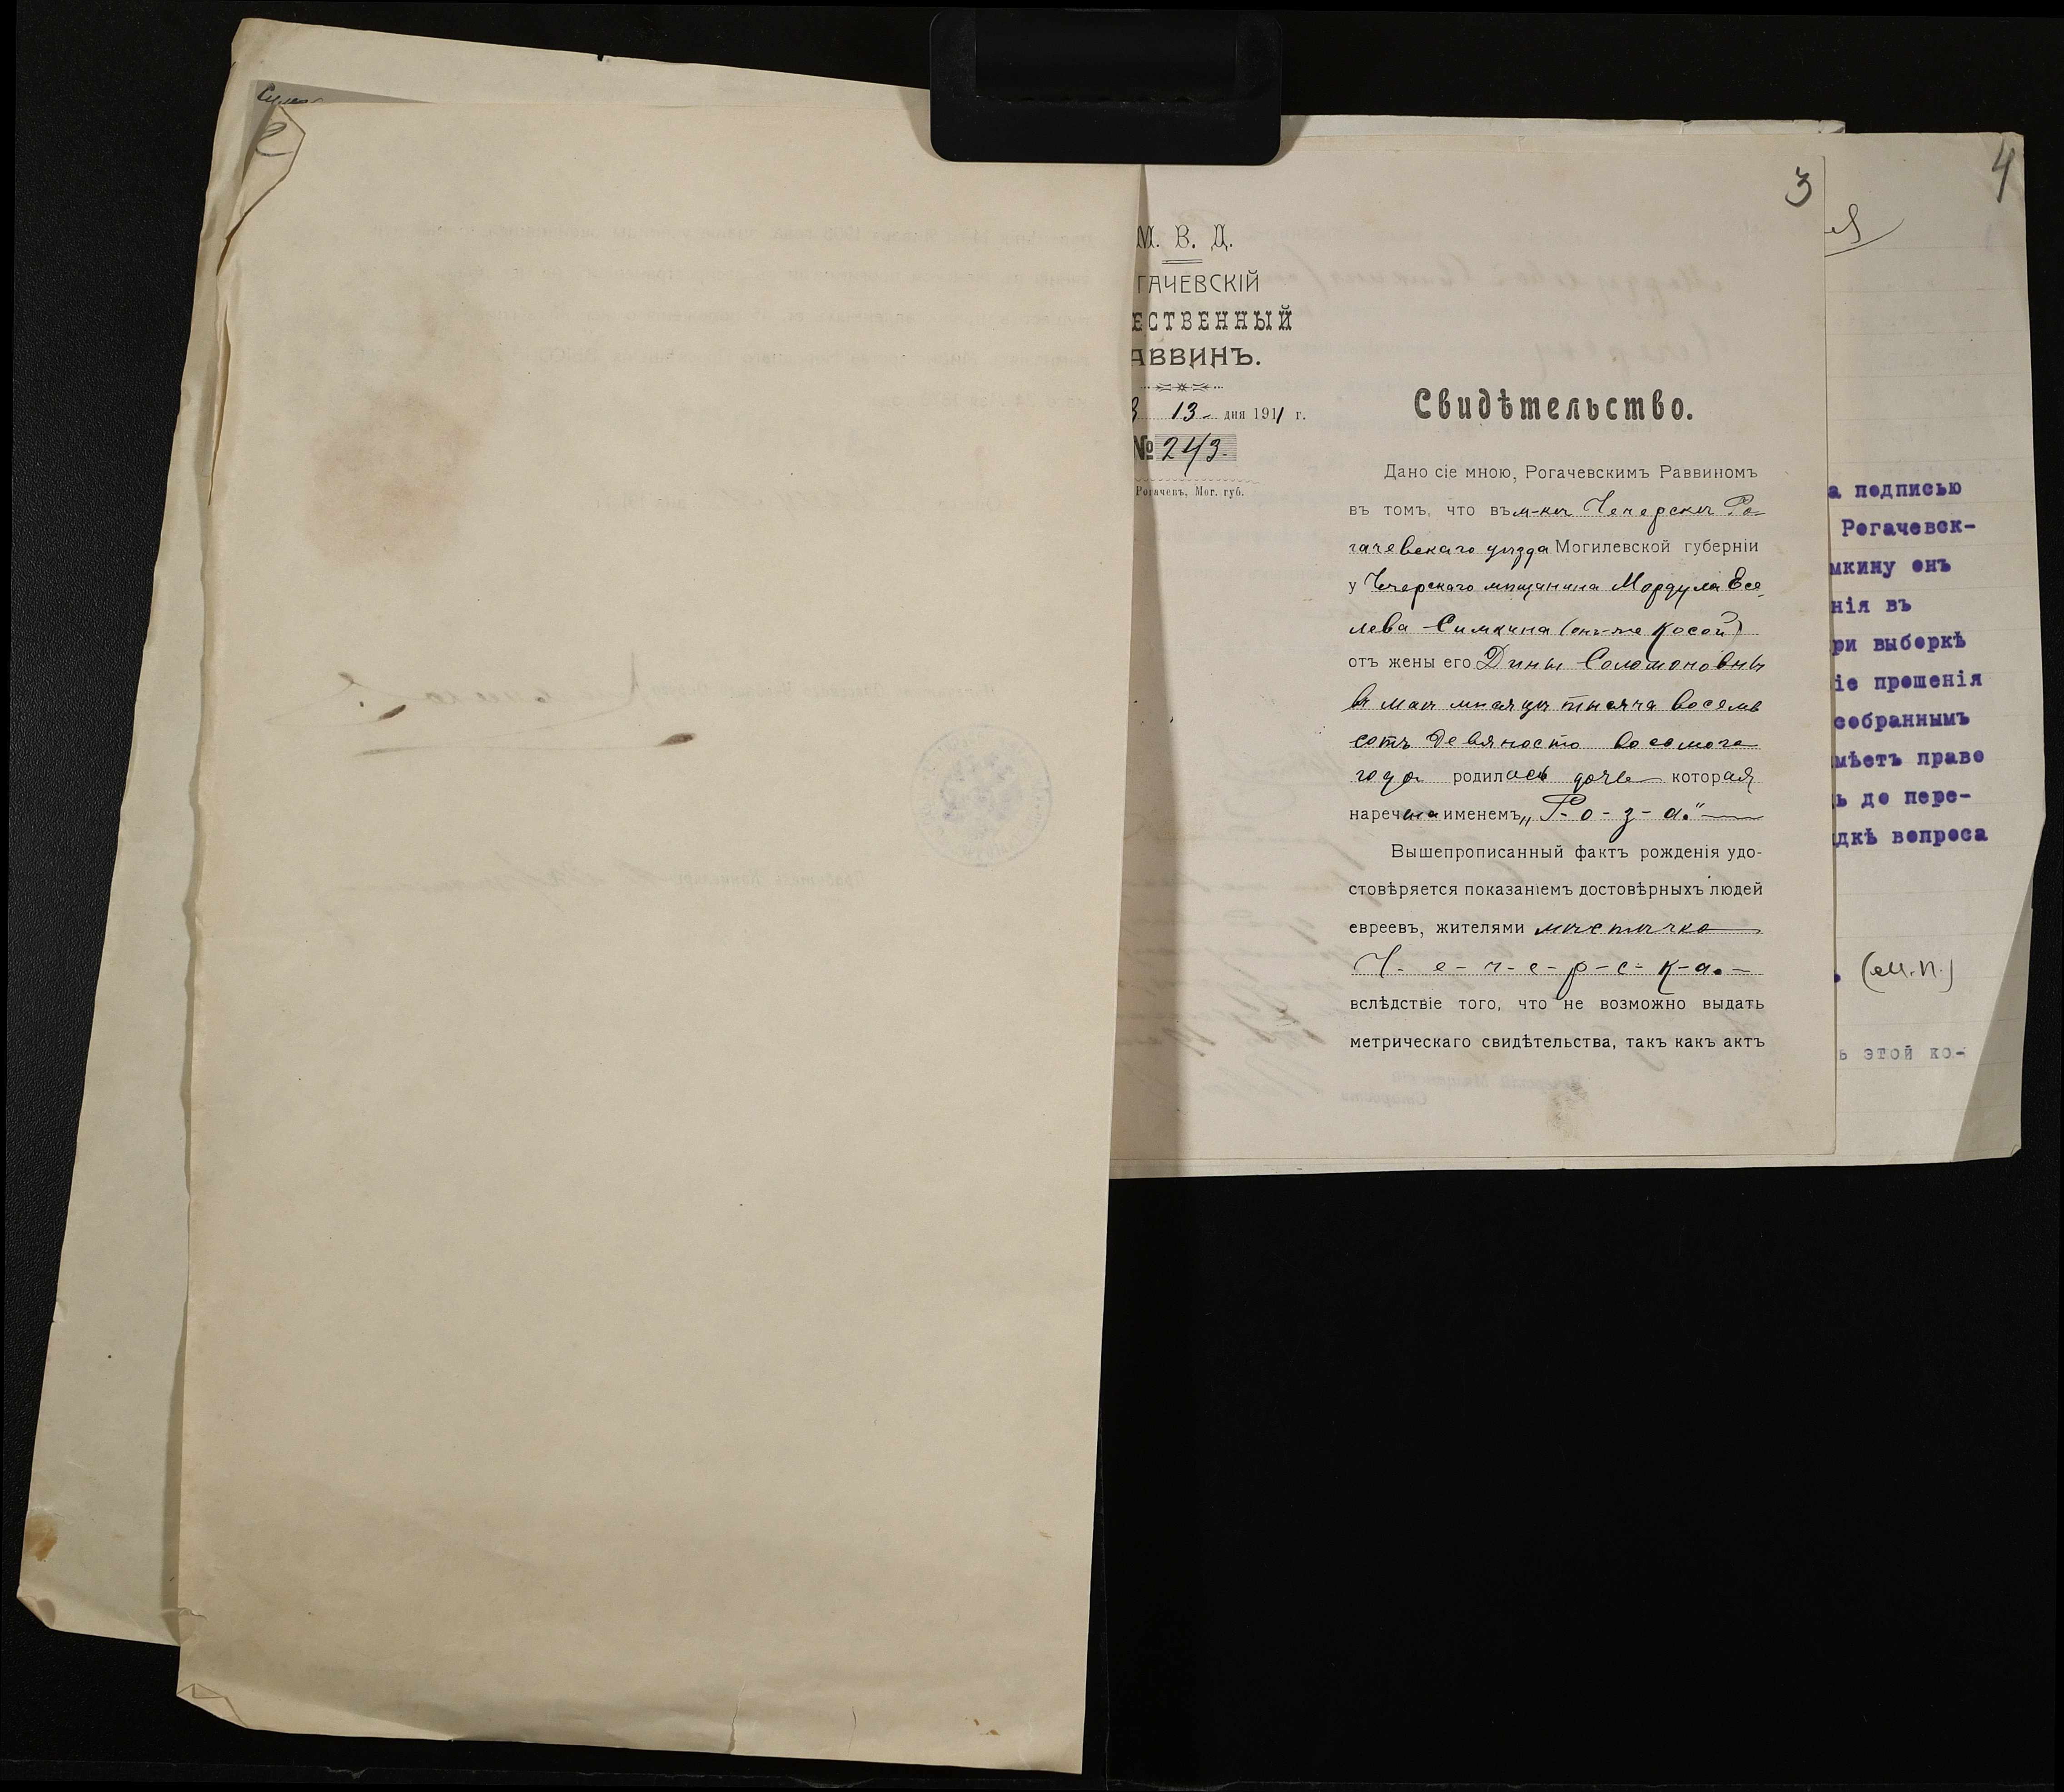 3
4
М. В. Д.
ГАЧЕВСКІЙ
ЕСТВЕННЫЙ
АВВИНЪ.
13 дня 1911 г.
№ 243.
Рогачевъ, Мог. губ.
Свидѣтельство.
Дано сіе мною, Рогачевскимъ Раввиномъ
въ томъ, что въ м-кѣ Чечерскѣ Ро-
гачевскаго уѣзда Могилевской губерніи
у Чечерскаго мѣщанина Мордуха Есе
лева Симкина (онъ-же Косой)
отъ жены его Дины Соломоновны
въ маѣ мѣсяцѣ тысяча восемь
сотъ девяносто восьмого
года родилась дочь которая
наречена именемъ „Р-о-з-а."
Вышепрописанный фактъ рожденія удо-
стовѣряется показаніемъ достовѣрныхъ людей
евреевъ, жителями мѣстечка
Ч-е-ч-е-р-с-к-а.
вслѣдствіе того, что не возможно выдать
метрическаго свидѣтельства, такъ какъ актъ
а подписью
Рогачевск-
мкину онъ
нія въ
ри выборкѣ
іе прошенія
собраннымъ
мѣетъ право
ь до пере-
дкѣ вопроса
(М.П.)
ь этой ко-